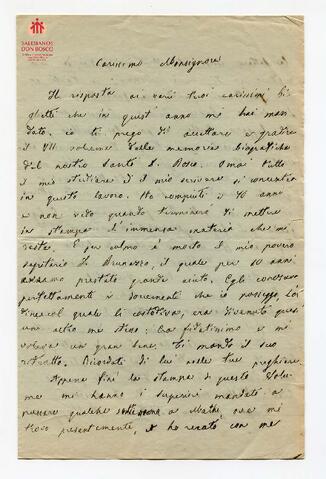 SALESIANOS
DON BOSCO
Carissimo Monsignore
In risposta ai varii tuoi carissimi bi
glietti che in quest'anno me hai man
dato, io ti prego di accettare e gradire
il VII volume delle memorie biografiche
del nostro Santo D. Bosco. Omai tutto
il mio studiare e il mio scrivere si concentra
in questo lavoro. Ho compiuti i 70 anni
e non vedo quando terminerò di mettere
in stampa l'immensa materia che mi
resta. E per colmo è morto il mio povero
segretario il quale per 10 anni
prestato grande aiuto. Egli conosceva
perfettamente i documenti che io posseggo
quali li custodiva, era divenuto quasi
un altro me stesso: Era fidatissimo e mi
voleva un gran bene. Ti mando il suo
ritratto. Ricordati di lui nelle tue preghiere.
Appena finì la stampa di questo volu
me mi hanno i superiori mandato a
passare qualche settimana a Mathi, ove mi
trovo presentemente, e ho recato con me